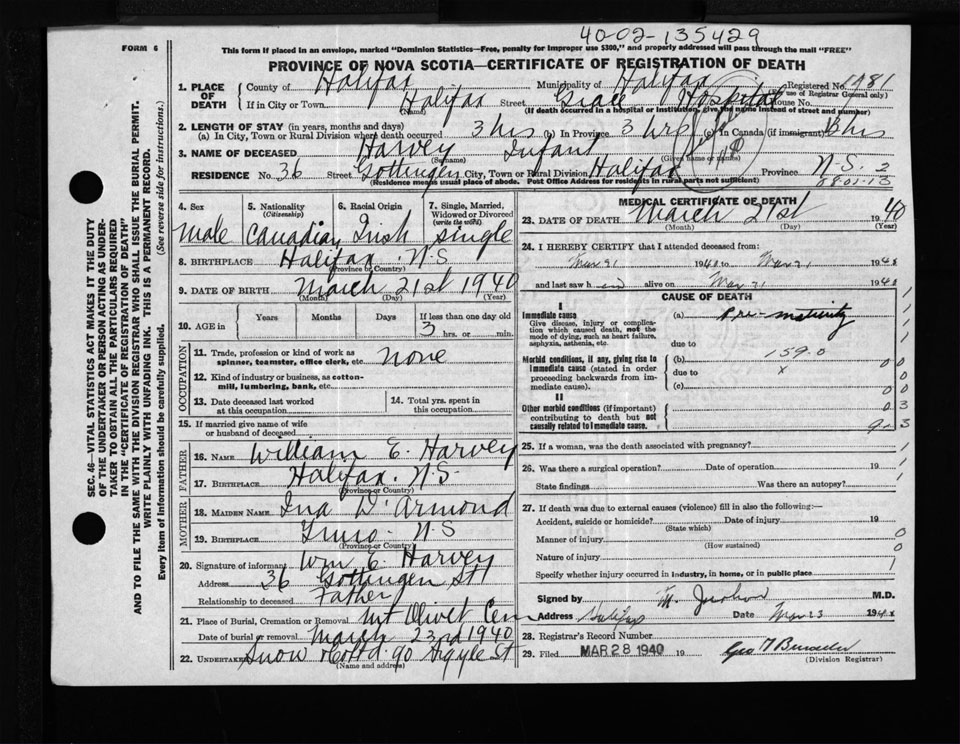 40-02-135429
FORM 6
This form if placed in an envelope, marked "Dominion Statistics—Free, penalty for improper use $300," and properly addressed will pass through the mail "FREE"
PROVINCE OF NOVA SCOTIA—CERTIFICATE OF REGISTRATION OF DEATH
1. PLACE OF DEATH
County of Halifax Municipality of Halifax Registered No. 1981
(For use of Registrar General only)
If in City or Town Halifax Street Grace Hospital House No.
(Name) (If death occurred in a hospital or institution, give the name instead of street and number)
2. LENGTH OF STAY (in years, months and days)
(a) In City, Town or Rural Division where death occurred 3 hrs (b) In Province 3 hrs (c) In Canada (if immigrant) 3 hrs
3. NAME OF DECEASED Harvey Infant
(Surname) (Given name or names)
RESIDENCE No. 36 Street Gottingen City, Town or Rural Division Halifax Province N.S. 2
(Residence means usual place of abode. Post Office Address for residents in rural parts not sufficient)
08-01-13
4. Sex
male
5. Nationality
(Citizenship)
Canadian
6. Racial Origin
Irish
7. Single, Married, Widowed or Divorced
(write the word)
single
8. BIRTHPLACE Halifax. N.S.
(Province or Country)
9. DATE OF BIRTH March 21st 1940
(Month) (Day) (Year)
10. AGE in
Years Months Days If less than one day old
3 hrs. or min.
OCCUPATION
11. Trade, profession or kind of work as spinner, teamster, office clerk, etc. none
12. Kind of industry or business, as cotton-mill, lumbering, bank, etc.
13. Date deceased last worked at this occupation
14. Total yrs. spent in this occupation
15. If married give name of wife or husband of deceased
FATHER
16. NAME William E. Harvey
17. BIRTHPLACE Halifax. N.S.
(Province or Country)
MOTHER
18. MAIDEN NAME Ina D'Armond
19. BIRTHPLACE Truro N.S
(Province or Country)
20. Signature of informant Wm E. Harvey
Address 36 Gottingen St
Relationship to deceased Father
21. Place of Burial, Cremation or Removal Mt Olivet Cem
Date of burial or removal March 23rd 1940
22. UNDERTAKER Snow & Co Ltd. 90 Argyle St
(Name and address)
MEDICAL CERTIFICATE OF DEATH
23. DATE OF DEATH March 21st 1940
(Month) (Day) (Year)
24. I HEREBY CERTIFY that I attended deceased from:
Mar 21 1940 to Mar 21 194
and last saw h alive on Mar 21 194
CAUSE OF DEATH
I
Immediate cause
Give disease, injury or complication which caused death, not the mode of dying, such as heart failure, asphyxia, asthenia, etc.
(a) Pre-maturity
due to
Morbid conditions, if any, giving rise to immediate cause (stated in order proceeding backwards from immediate cause).
(b) 159.0
due to x
(c)
II
Other morbid conditions (if important) contributing to death but not causally related to immediate cause.
25. If a woman, was the death associated with pregnancy?
26. Was there a surgical operation? Date of operation 19
State findings Was there an autopsy?
27. If death was due to external causes (violence) fill in also the following:—
Accident, suicide or homicide? Date of injury 19
(State which)
Manner of injury
(How sustained)
Nature of injury
Specify whether injury occurred in industry, in home, or in public place
Signed by M. M.D.
Address Halifax Date Mar 23 194
28. Registrar's Record Number
29. Filed MAR 28 1940 19 Geo
(Division Registrar)
SEC. 46—VITAL STATISTICS ACT MAKES IT THE DUTY
OF THE UNDERTAKER OR PERSON ACTING AS UNDER-
TAKER TO OBTAIN ALL THE PARTICULARS REQUIRED
IN THE "CERTIFICATE OF REGISTRATION OF DEATH"
AND TO FILE THE SAME WITH THE DIVISION REGISTRAR WHO SHALL ISSUE THE BURIAL PERMIT.
WRITE PLAINLY WITH UNFADING INK. THIS IS A PERMANENT RECORD.
Every item of information should be carefully supplied. (See reverse side for instructions.)